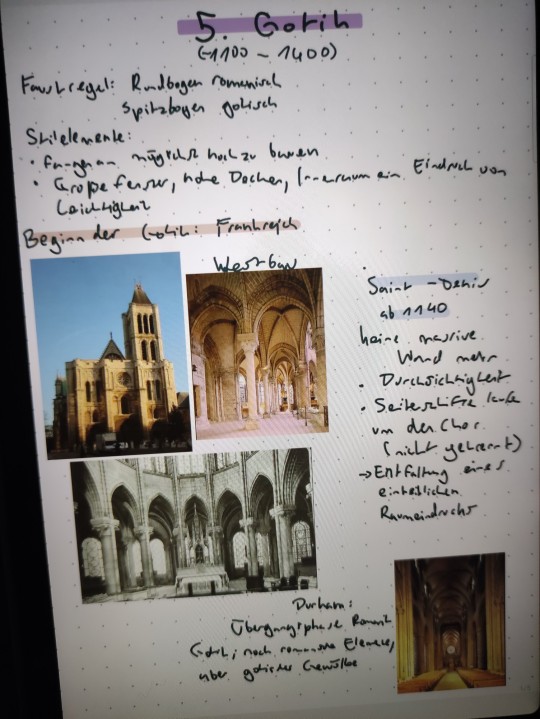 5. Gotik
(~1100 - 1400)
Faustregel: Rundbogen romanisch
Spitzbogen gotisch
Stilelemente:
• fangen an möglichst hoch zu bauen
• Große Fenster, hohe Decken, Innenraum ein Eindruck von
Leichtigkeit
Beginn der Gotik: Frankreich
Westbau
Saint-Denis
ab 1140
keine massive
Wand mehr
• Durchsichtigkeit
• Seitenschiffe laufen
um den Chor
(nicht getrennt)
→ Entfaltung eines
einheitlichen
Raumeindrucks
Durham:
Übergangsphase Romanik
Gotik; noch romanische Elemente,
aber gotische Gewölbe